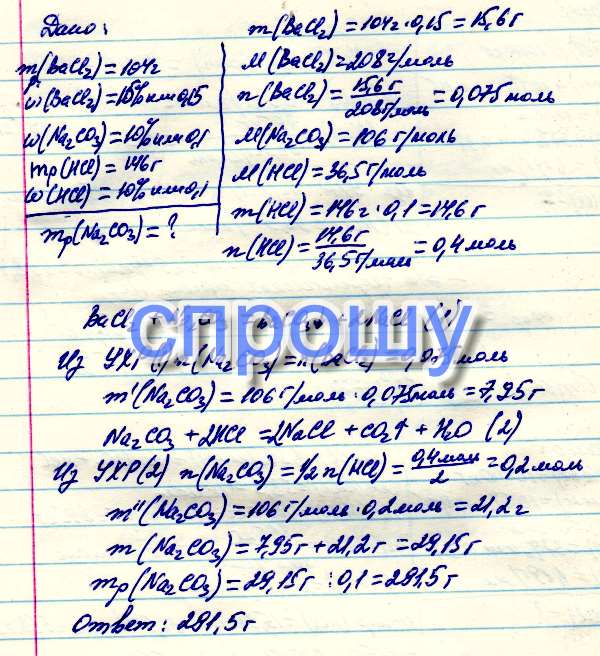 Дано:
m(BaCl₂)=104г
ω(BaCl₂)=15% или 0,15
ω(Na₂CO₃)=10% или 0,1
mр(HCl)=146г
ω(HCl)=10% или 0,1
mр(Na₂CO₃)=?
m(BaCl₂)=104г·0,15=15,6г
M(BaCl₂)=208г/моль
n(BaCl₂)=15,6г/208г/моль=0,075моль
M(Na₂CO₃)=106 г/моль
M(HCl)=36,5г/моль
m(HCl)=146г·0,1=14,6г
n(HCl)=14,6г/36,5г/моль=0,4моль
BaCl₂ + (1)
спрошу
Из УХР(1) n(Na₂CO₃)= моль
m'(Na₂CO₃)=106г/моль·0,075моль=7,95г
Na₂CO₃+2HCl=2NaCl+CO₂↑+H₂O (2)
Из УХР(2) n(Na₂CO₃)=1/2 n(HCl)=0,4моль/2=0,2моль
m''(Na₂CO₃)=106г/моль·0,2моль=21,2г
m(Na₂CO₃)=7,95г+21,2г=29,15г
mр(Na₂CO₃)=29,15г:0,1=291,5г
Ответ: 291,5г